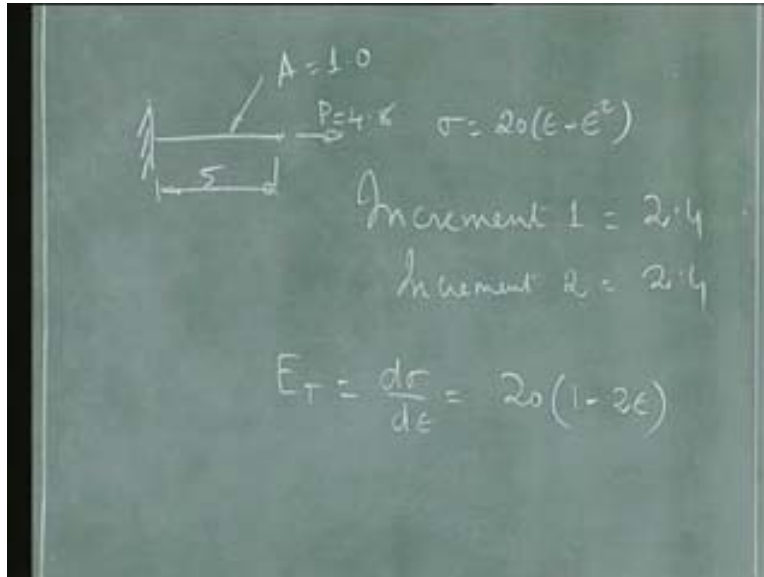 A = 1.0
P=4.8 σ = 20(ϵ - ϵ²)
5
Increment 1 = 2.4
Increment 2 = 2.4
E_T = dσ/dϵ = 20(1 - 2ϵ)